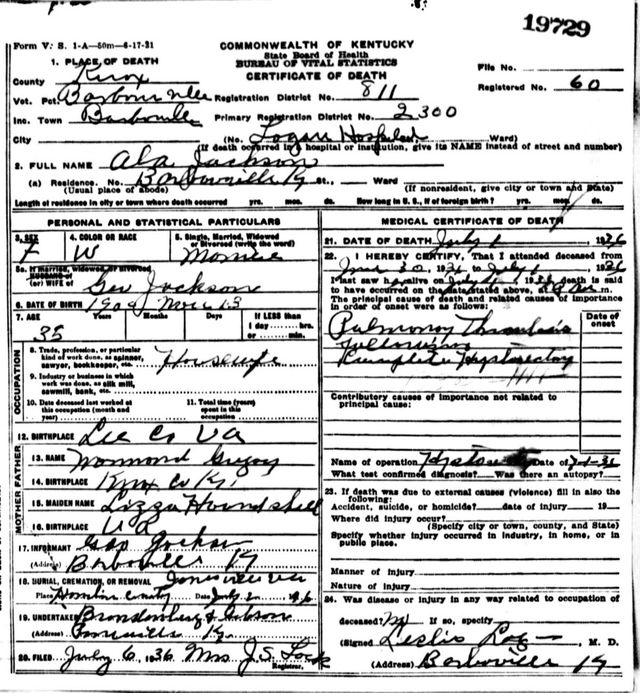 19729
Form V. S. 1-A—50m—6-17-31
COMMONWEALTH OF KENTUCKY
State Board of Health
BUREAU OF VITAL STATISTICS
CERTIFICATE OF DEATH
File No.
Registered No. 60
1. PLACE OF DEATH
County Knox
Vot. Pct. Barbourville Registration District No. 811
Inc. Town Primary Registration District No. 2300
City (No. Logan Hospital Ward)
(If death occurred in a hospital or institution, give its NAME instead of street and number)
2. FULL NAME Ala Jackson
(a) Residence. No. Barbourville Ky St., Ward
(Usual place of abode) (If nonresident, give city or town and State)
Length of residence in city or town where death occurred yrs. mos. ds. How long in U. S., if of foreign birth? yrs. mos. ds.
PERSONAL AND STATISTICAL PARTICULARS
3. SEX F
4. COLOR OR RACE W
5. Single, Married, Widowed or Divorced (write the word)
5a. If married, widowed, or divorced
HUSBAND of
(or) WIFE of Geo Jackson
6. DATE OF BIRTH
7. AGE Years Months Days If LESS than
1 day hrs.
or min.
35
OCCUPATION
8. Trade, profession, or particular
kind of work done, as spinner,
sawyer, bookkeeper, etc. Housewife
9. Industry or business in which
work was done, as silk mill,
sawmill, bank, etc.
10. Date deceased last worked at
this occupation (month and
year)
11. Total time (years)
spent in this
occupation
12. BIRTHPLACE Lee Co Va
MOTHER FATHER
13. NAME Gregory
14. BIRTHPLACE Knox Co Ky.
15. MAIDEN NAME Lizza Houndshell
16. BIRTHPLACE Va
17. INFORMANT Jackson
(Address) Barboville Ky
18. BURIAL, CREMATION, OR REMOVAL
Place Date July 2 1936
19. UNDERTAKER Brandenburg & Gibson
(Address) Ky.
20. FILED July 6, 1936 Mrs J. S. Lock
Registrar.
MEDICAL CERTIFICATE OF DEATH
21. DATE OF DEATH July 1 1936
22. I HEREBY CERTIFY, That I attended deceased from
June 30, 1936 to July 1 1936
I last saw h alive on July 1936 death is said
to have occurred on the date stated above, at m.
The principal cause of death and related causes of importance
in order of onset were as follows:
Date of
onset
Pulmonary Thrombosis
following
Complete Hysterectomy
Contributory causes of importance not related to
principal cause:
Name of operation Date of 7-1-36
What test confirmed diagnosis? Was there an autopsy?
23. If death was due to external causes (violence) fill in also the
following:
Accident, suicide, or homicide? date of injury 19
Where did injury occur?
(Specify city or town, county, and State)
Specify whether injury occurred in industry, in home, or in
public place.
Manner of injury
Nature of injury
24. Was disease or injury in any way related to occupation of
deceased? No If so, specify
(Signed) Leslie M. D.
(Address) Barboville Ky